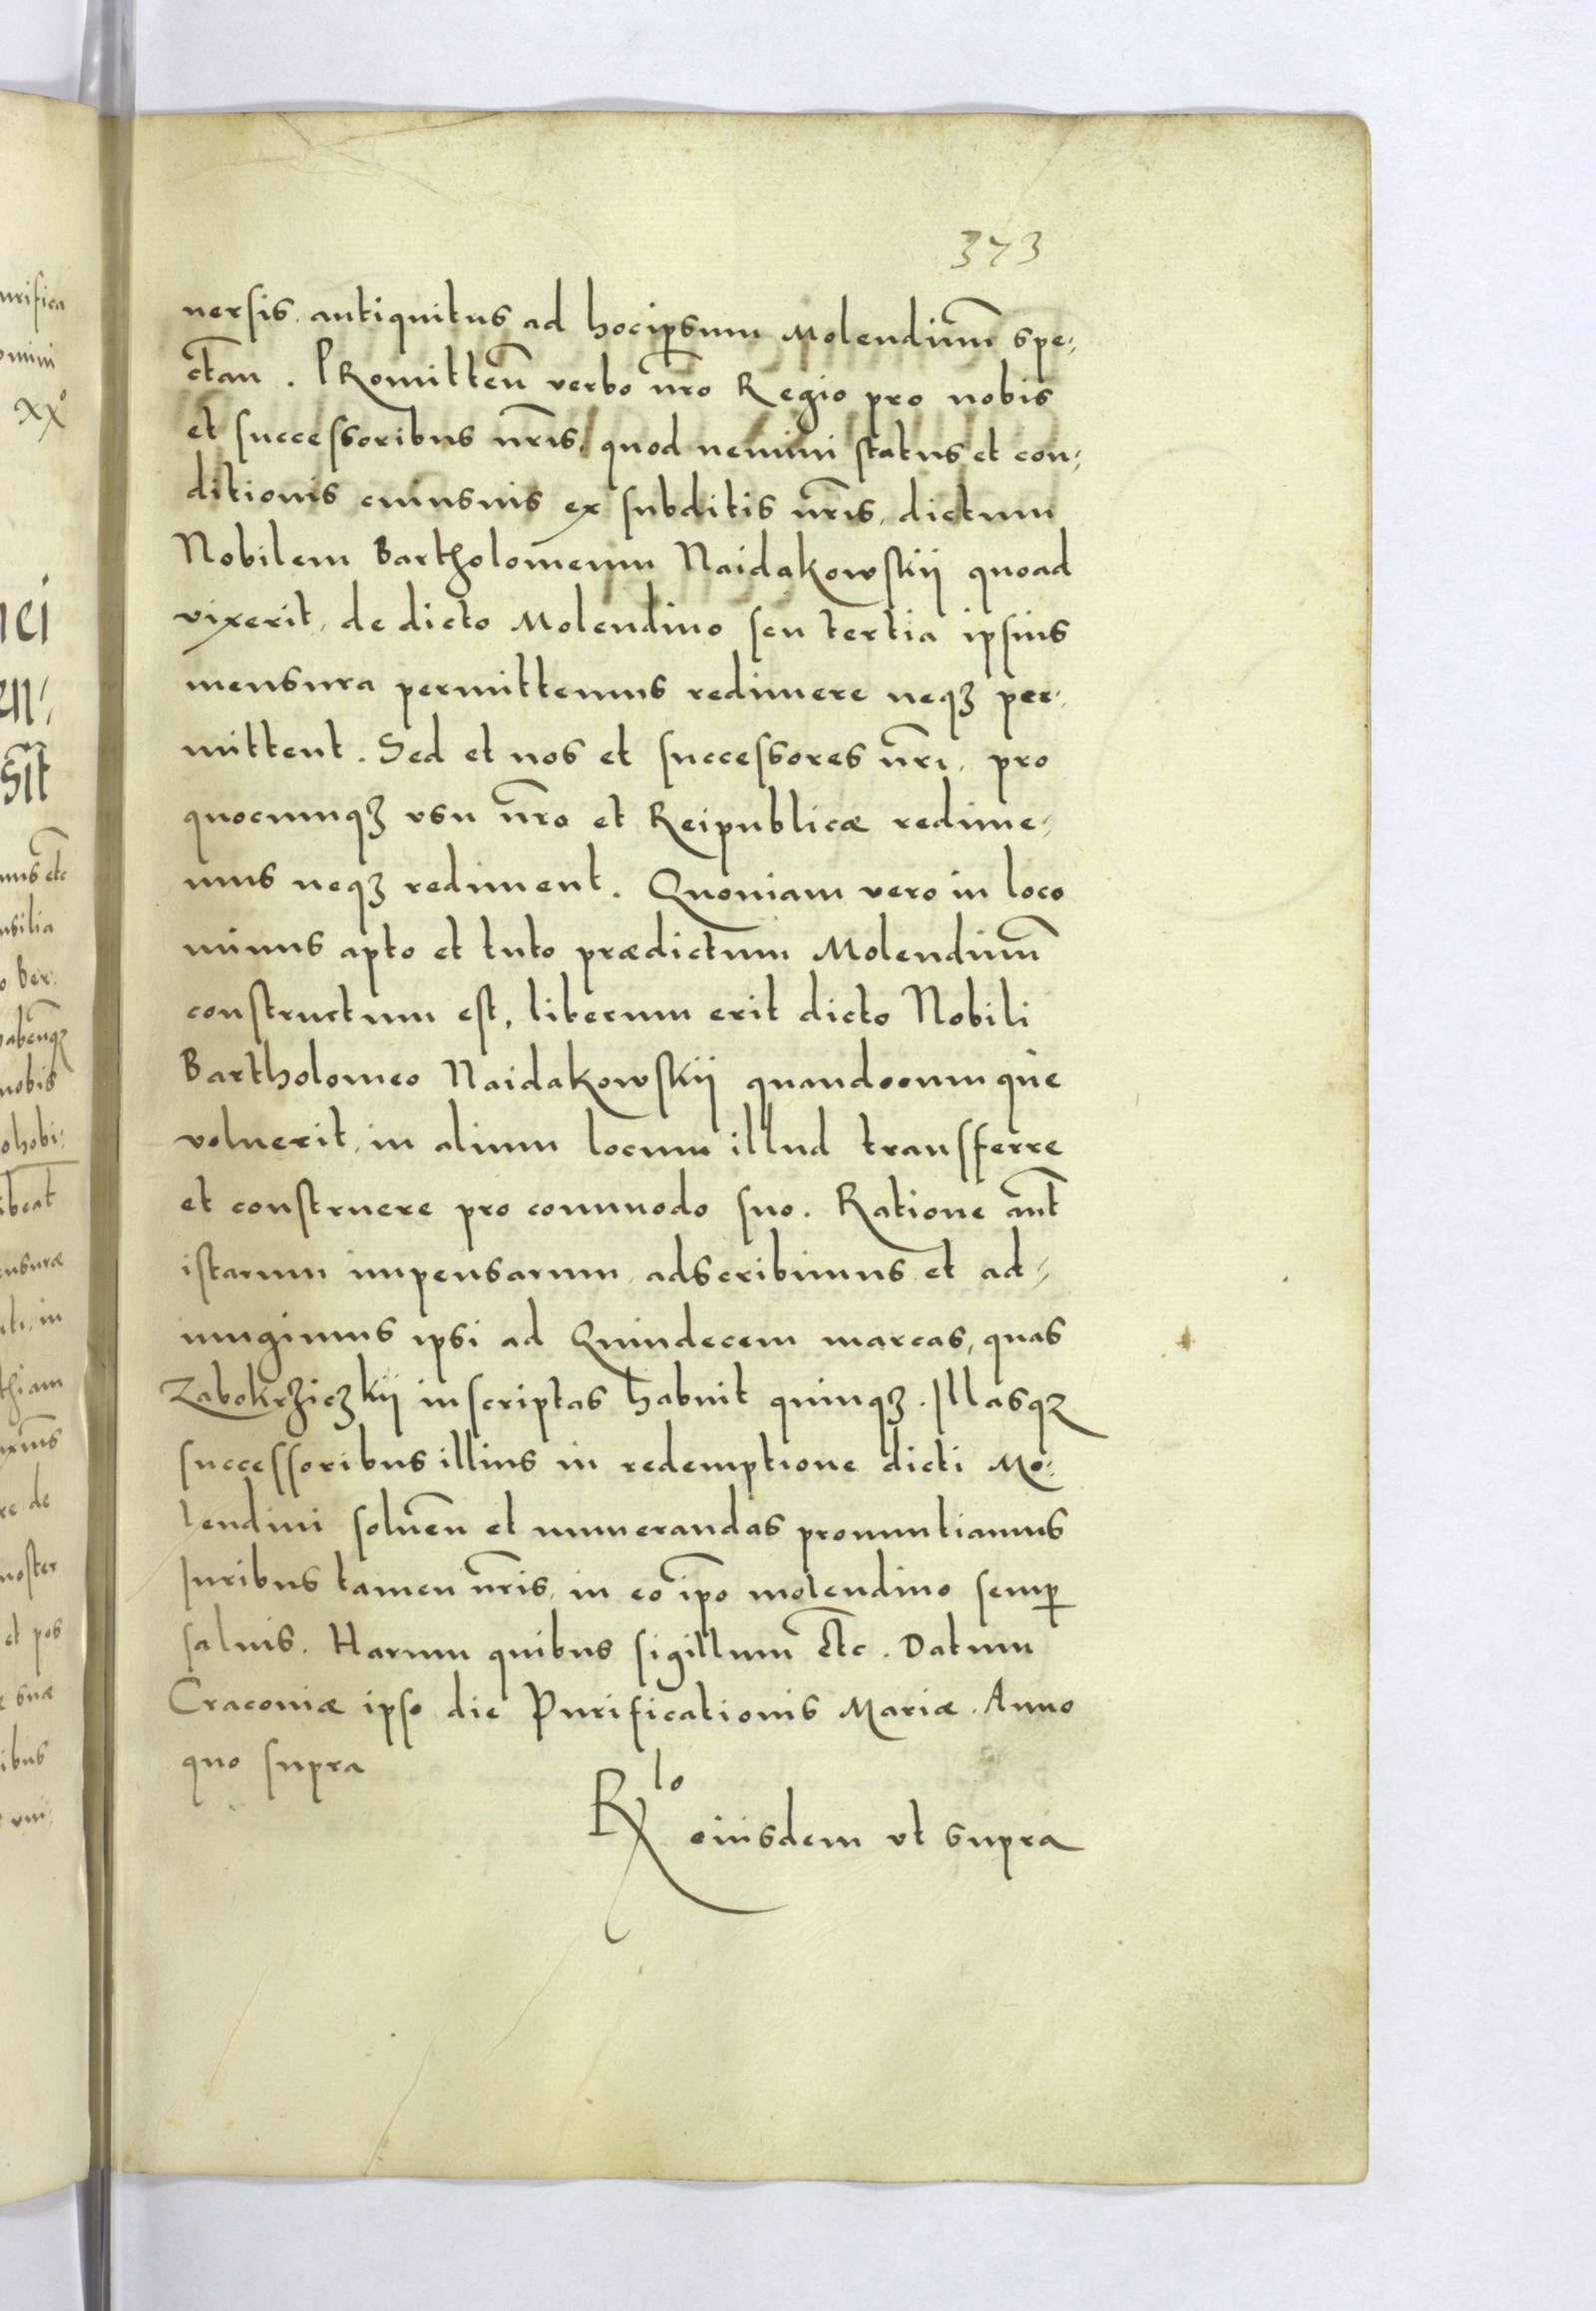 373
uersis antiquitus ad hocipsum Molendinū spe:
ctan̄. PRomitten̄ verbo nr̄o Regio pro nobis
et successoribus nr̄is, quod nemini status et con:
ditionis cuiusuis ex subditis nr̄is, dictum
Nobilem Bartholomeum Naidakowskij quoad
vixerit, de dicto Molendino seu tertia ipsius
mensura permittemus redimere neqꝫ per:
mittent. Sed et nos et successores nr̄i, pro
quocumqꝫ vsu nr̄o et Reipublicæ redime:
mus neqꝫ rediment. Quoniam vero in loco
minus apto et tuto prædictum Molendinū
constructum est, liberum erit dicto Nobili
Bartholomeo Naidakowskij quandocumque
voluerit, in alium locum illud transferre
et construere pro commodo suo. Ratione aūt
istarum impensarum adscribimus et ad:
iungimus ipsi ad Quindecem marcas, quas
Zabokrziczkij inscriptas habuit quinqꝫ. Illasqꝫ
successoribus illius in redemptione dicti Mo:
lendini soluen̄ et numerandas pronuntiamus
Juribus tamen nr̄is, in eo ip̄o molendino semꝑ
saluis. Harum quibus sigillum etc̄. Datum
Cracouiæ ipso die Purificationis Mariæ. Anno
quo supra
Rlo eiusdem vt supra
urifica
omini
xxº
nci
en:
sit
mus etc̄
nsilia
o Ber:
habenqꝫ
nobis
ohobi:
ibeat
ensuræ
iti, in
thiam
re de
noster
et pos
e suæ
ibus